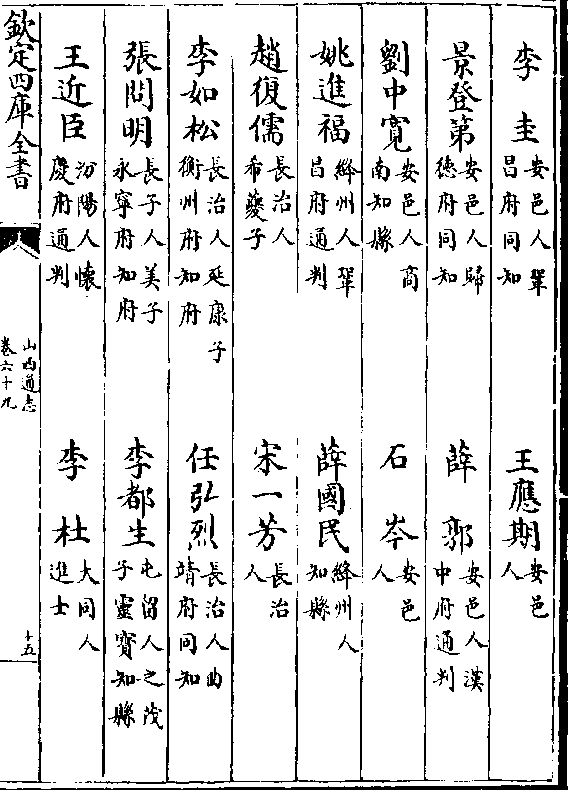 李圭安邑人鞏昌府同知　王應期安邑人
景登第安邑人歸德府同知　薛郭安邑人漢中府通判
劉中寛安邑人商南知縣　石岑安邑人
姚進福絳州人鞏昌府通判　薛國民絳州人知縣
趙復儒長治人希夔子　宋一芳長治人
李如松長治人延康子衡州府知府　任弘烈長治人曲靖府同知
張問明長子人美子永寧府知府　李都生屯留人之茂子靈寳知縣
王近臣汾陽人懷慶府通判　李杜大同人進士
欽定四庫全書
山西通志
卷六十九
十五